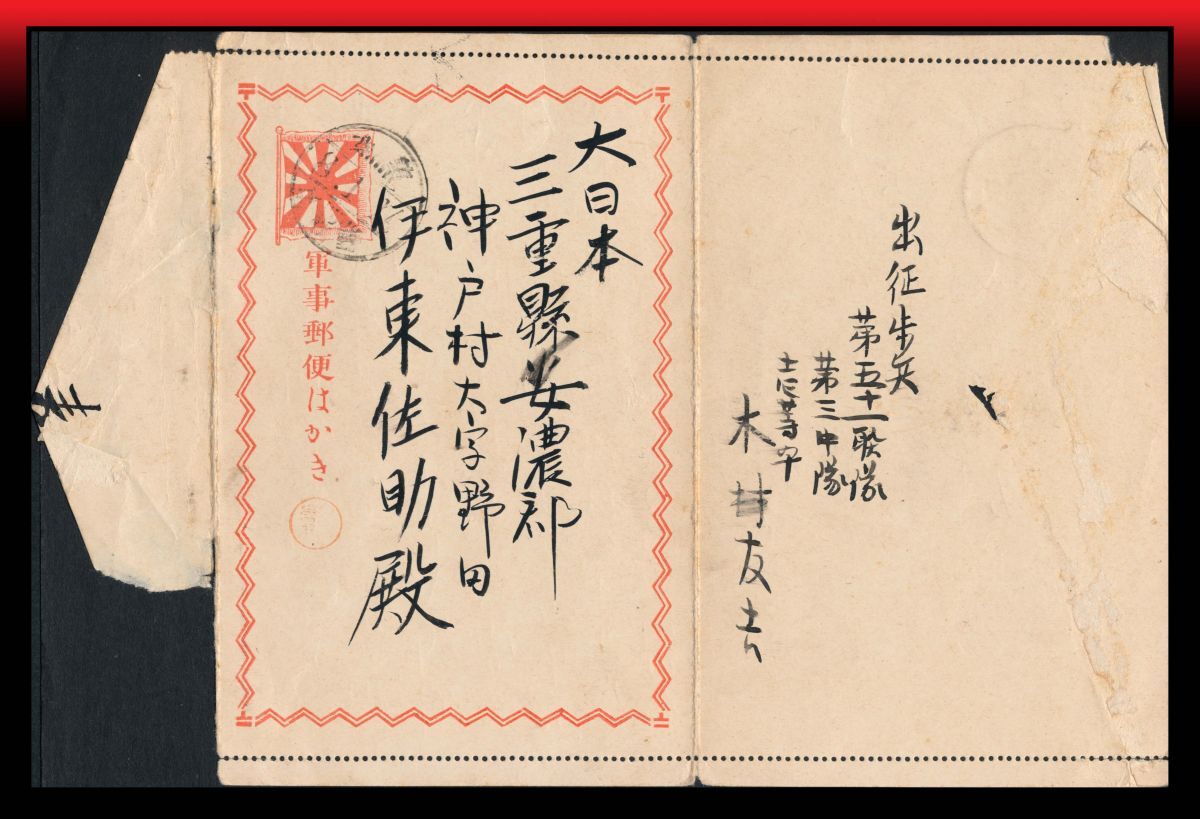 出征歩兵
第五十一聯隊
第三中隊
木村友吉
大日本
三重縣安濃郡
神戸村大字野田
伊東佐助殿
軍事郵便はかき